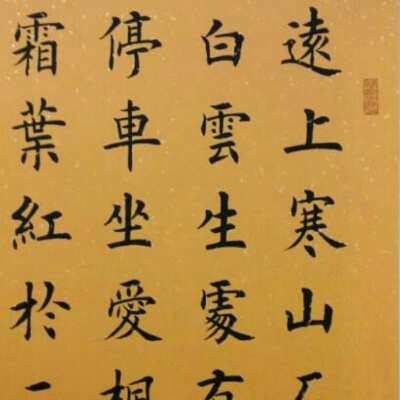 遠上寒山
白雲生處有
停車坐愛
霜葉紅於